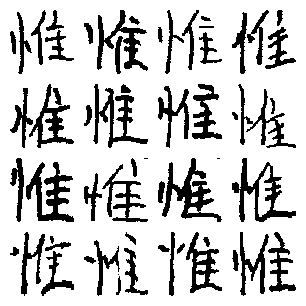 惟惟惟惟
惟惟惟惟
惟惟惟惟
惟惟惟惟